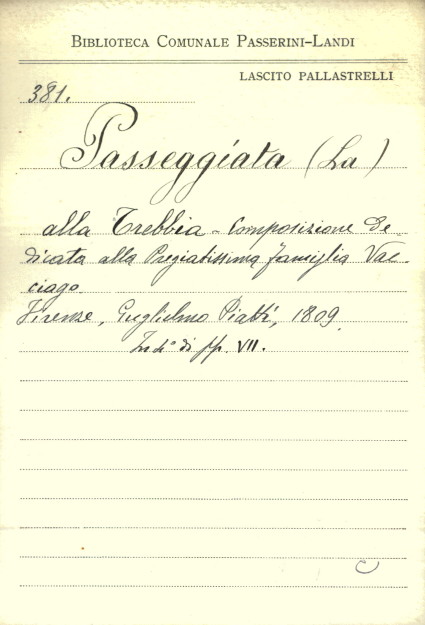 BIBLIOTECA COMUNALE PASSERINI-LANDI
LASCITO PALLASTRELLI
381.
Passeggiata (La)
alla Trebbia - Composizione de-
dicata alla Pregiatissima famiglia Vac-
ciago.
Firenze, Guglielmo Piatti, 1809.
In 4° di pp. VII.
C